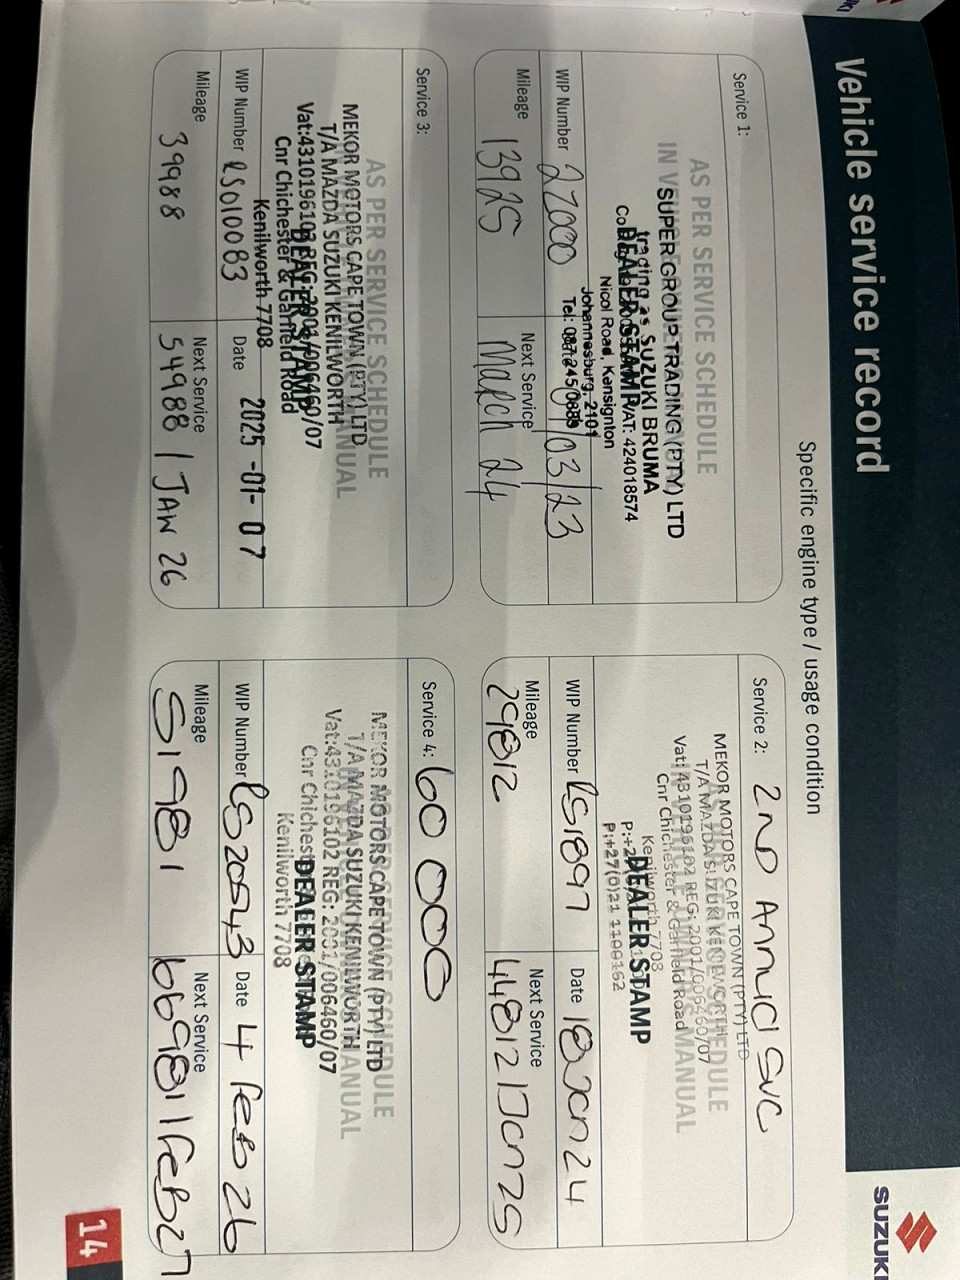 Vehicle service record
SUZUKI
Specific engine type / usage condition
Service 1:
AS PER SERVICE SCHEDULE
SUPER GROUP TRADING (PTY) LTD
trading as SUZUKI BRUMA
DEALER STAMP
VAT: 424018574
Nicol Road, Kensignton
Johannesburg, 2101
Tel: 087 245 0889
WIP Number 27000
/03/23
Mileage 13925
Next Service March 24
Service 2: 2ND Annual SVC
MEKOR MOTORS CAPE TOWN (PTY) LTD
T/A MAZDA SUZUKI KENILWORTH
Vat: 4310196102 REG: 2001/006460/07
Cnr Chichester & Garfield Road
Kenilworth 7708
DEALER STAMP
P:+27(0)21 1100162
WIP Number RS1897
Date 18 Jan 24
Mileage 29812
Next Service 44812 | Jan 25
Service 3:
AS PER SERVICE SCHEDULE
MEKOR MOTORS CAPE TOWN (PTY) LTD
T/A MAZDA SUZUKI KENILWORTH
Vat:4310196102 REG: 2001/006460/07
DEALER STAMP
Cnr Chichester & Garfield Road
Kenilworth 7708
WIP Number RS010083
Date 2025 -01- 07
Mileage 39988
Next Service 54988 / JAN 26
Service 4: 60 000
MEKOR MOTORS CAPE TOWN (PTY) LTD
T/A MAZDA SUZUKI KENILWORTH
Vat:4310196102 REG: 2001/006460/07
DEALER STAMP
Kenilworth 7708
WIP Number RS20543
Date 4 Feb 26
Mileage 51981
Next Service 66981 | Feb 27
14